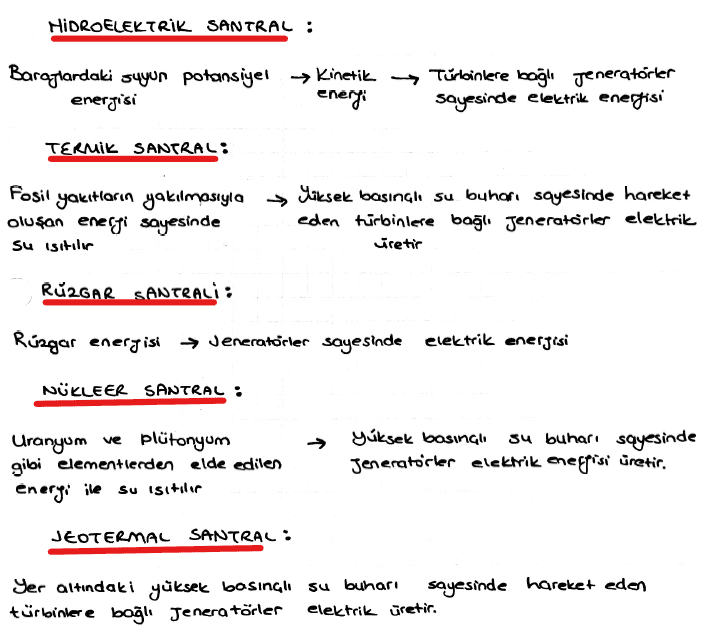 HİDROELEKTRİK SANTRAL :
Barajlardaki suyun potansiyel → Kinetik → Türbinlere bağlı jeneratörler
energisi enerji sayesinde elektrik enerjisi
TERMİK SANTRAL :
Fosil yakıtların yakılmasıyla → Yüksek basınçlı su buharı sayesinde hareket
oluşan enerji sayesinde eden türbinlere bağlı jeneratörler elektrik
su ısıtılır üretir
RÜZGAR SANTRALİ :
Rüzgar enerjisi → Jeneratörler sayesinde elektrik enerjisi
NÜKLEER SANTRAL :
Uranyum ve plütonyum → Yüksek basınçlı su buharı sayesinde
gibi elementlerden elde edilen jeneratörler elektrik enerjisi üretir.
enerji ile su ısıtılır
JEOTERMAL SANTRAL :
Yer altındaki yüksek basınçlı su buharı sayesinde hareket eden
türbinlere bağlı jeneratörler elektrik üretir.